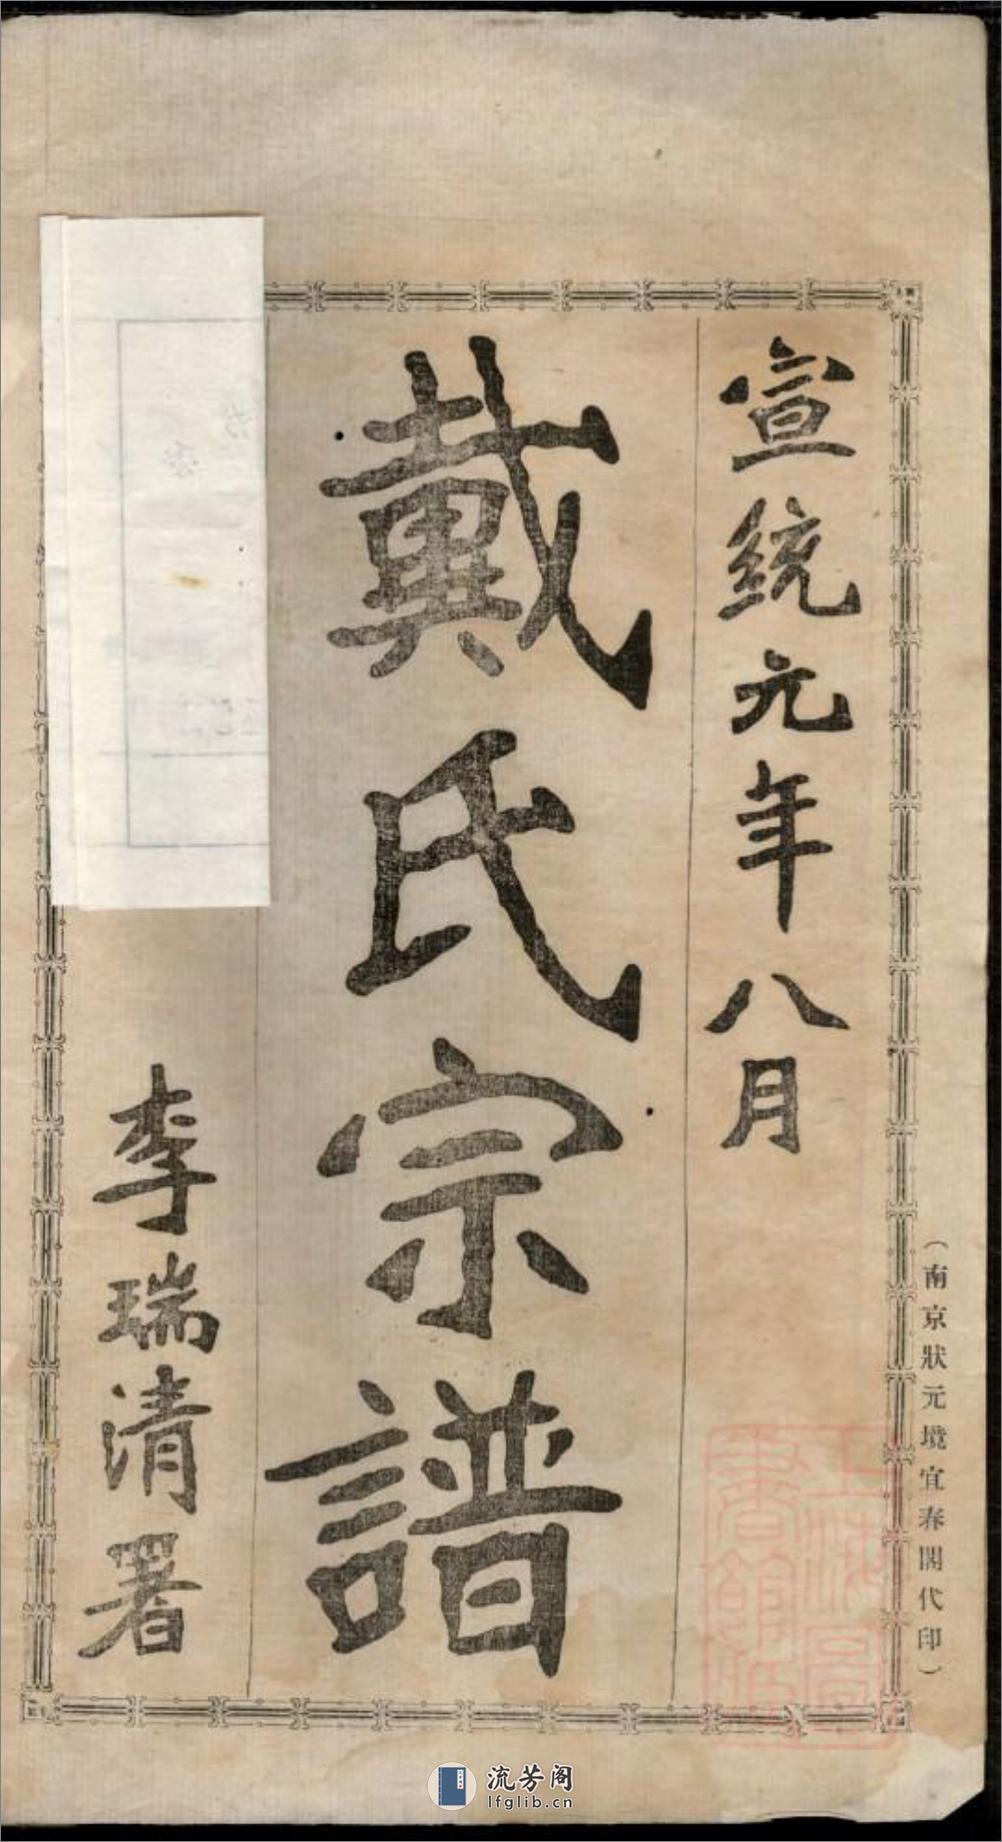 宣統元年八月
戴氏宗譜
李瑞清署
（南京狀元境宜春閣代印）
上海圖書館藏
流芳阁
lfglib.cn